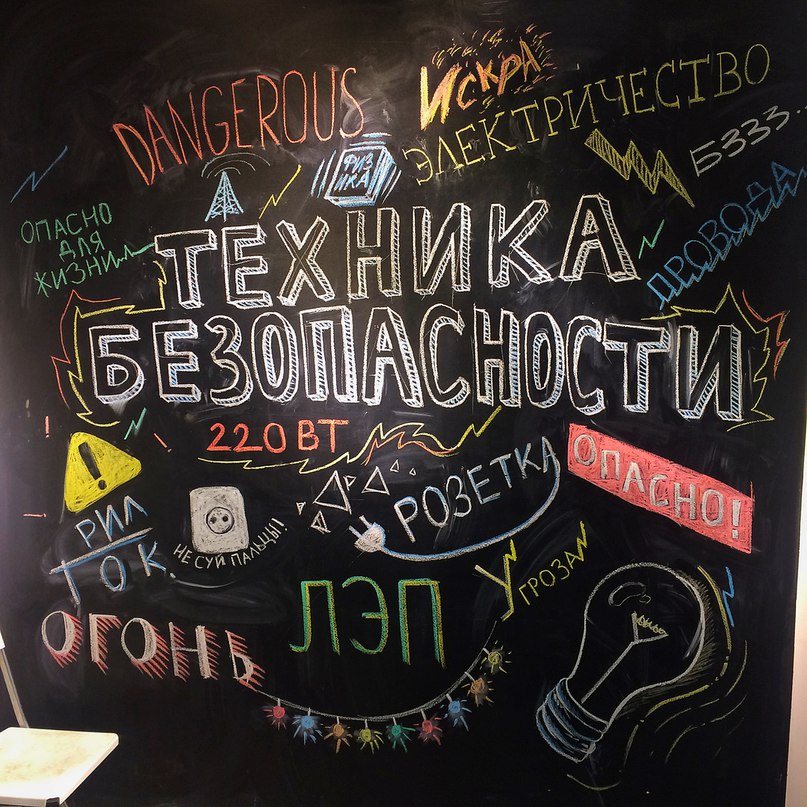 DANGEROUS
ИСКРА
ЭЛЕКТРИЧЕСТВО
ФИЗ
ИКА
БЗЗЗ...
ОПАСНО
ДЛЯ
ЖИЗНИ
ПРОВОДА
ТЕХНИКА
БЕЗОПАСНОСТИ
220 ВТ
!
РОЗЕТКА
ОПАСНО!
РИЛ
ТОК.
НЕ СУЙ ПАЛЬЦЫ!
ОГОНЬ
ЛЭП
УГРОЗА